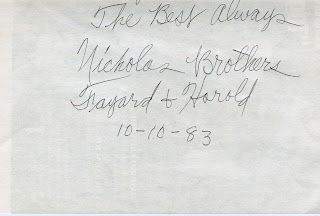 The Best Always
Nicholas Brothers
Fayard & Harold
10-10-83